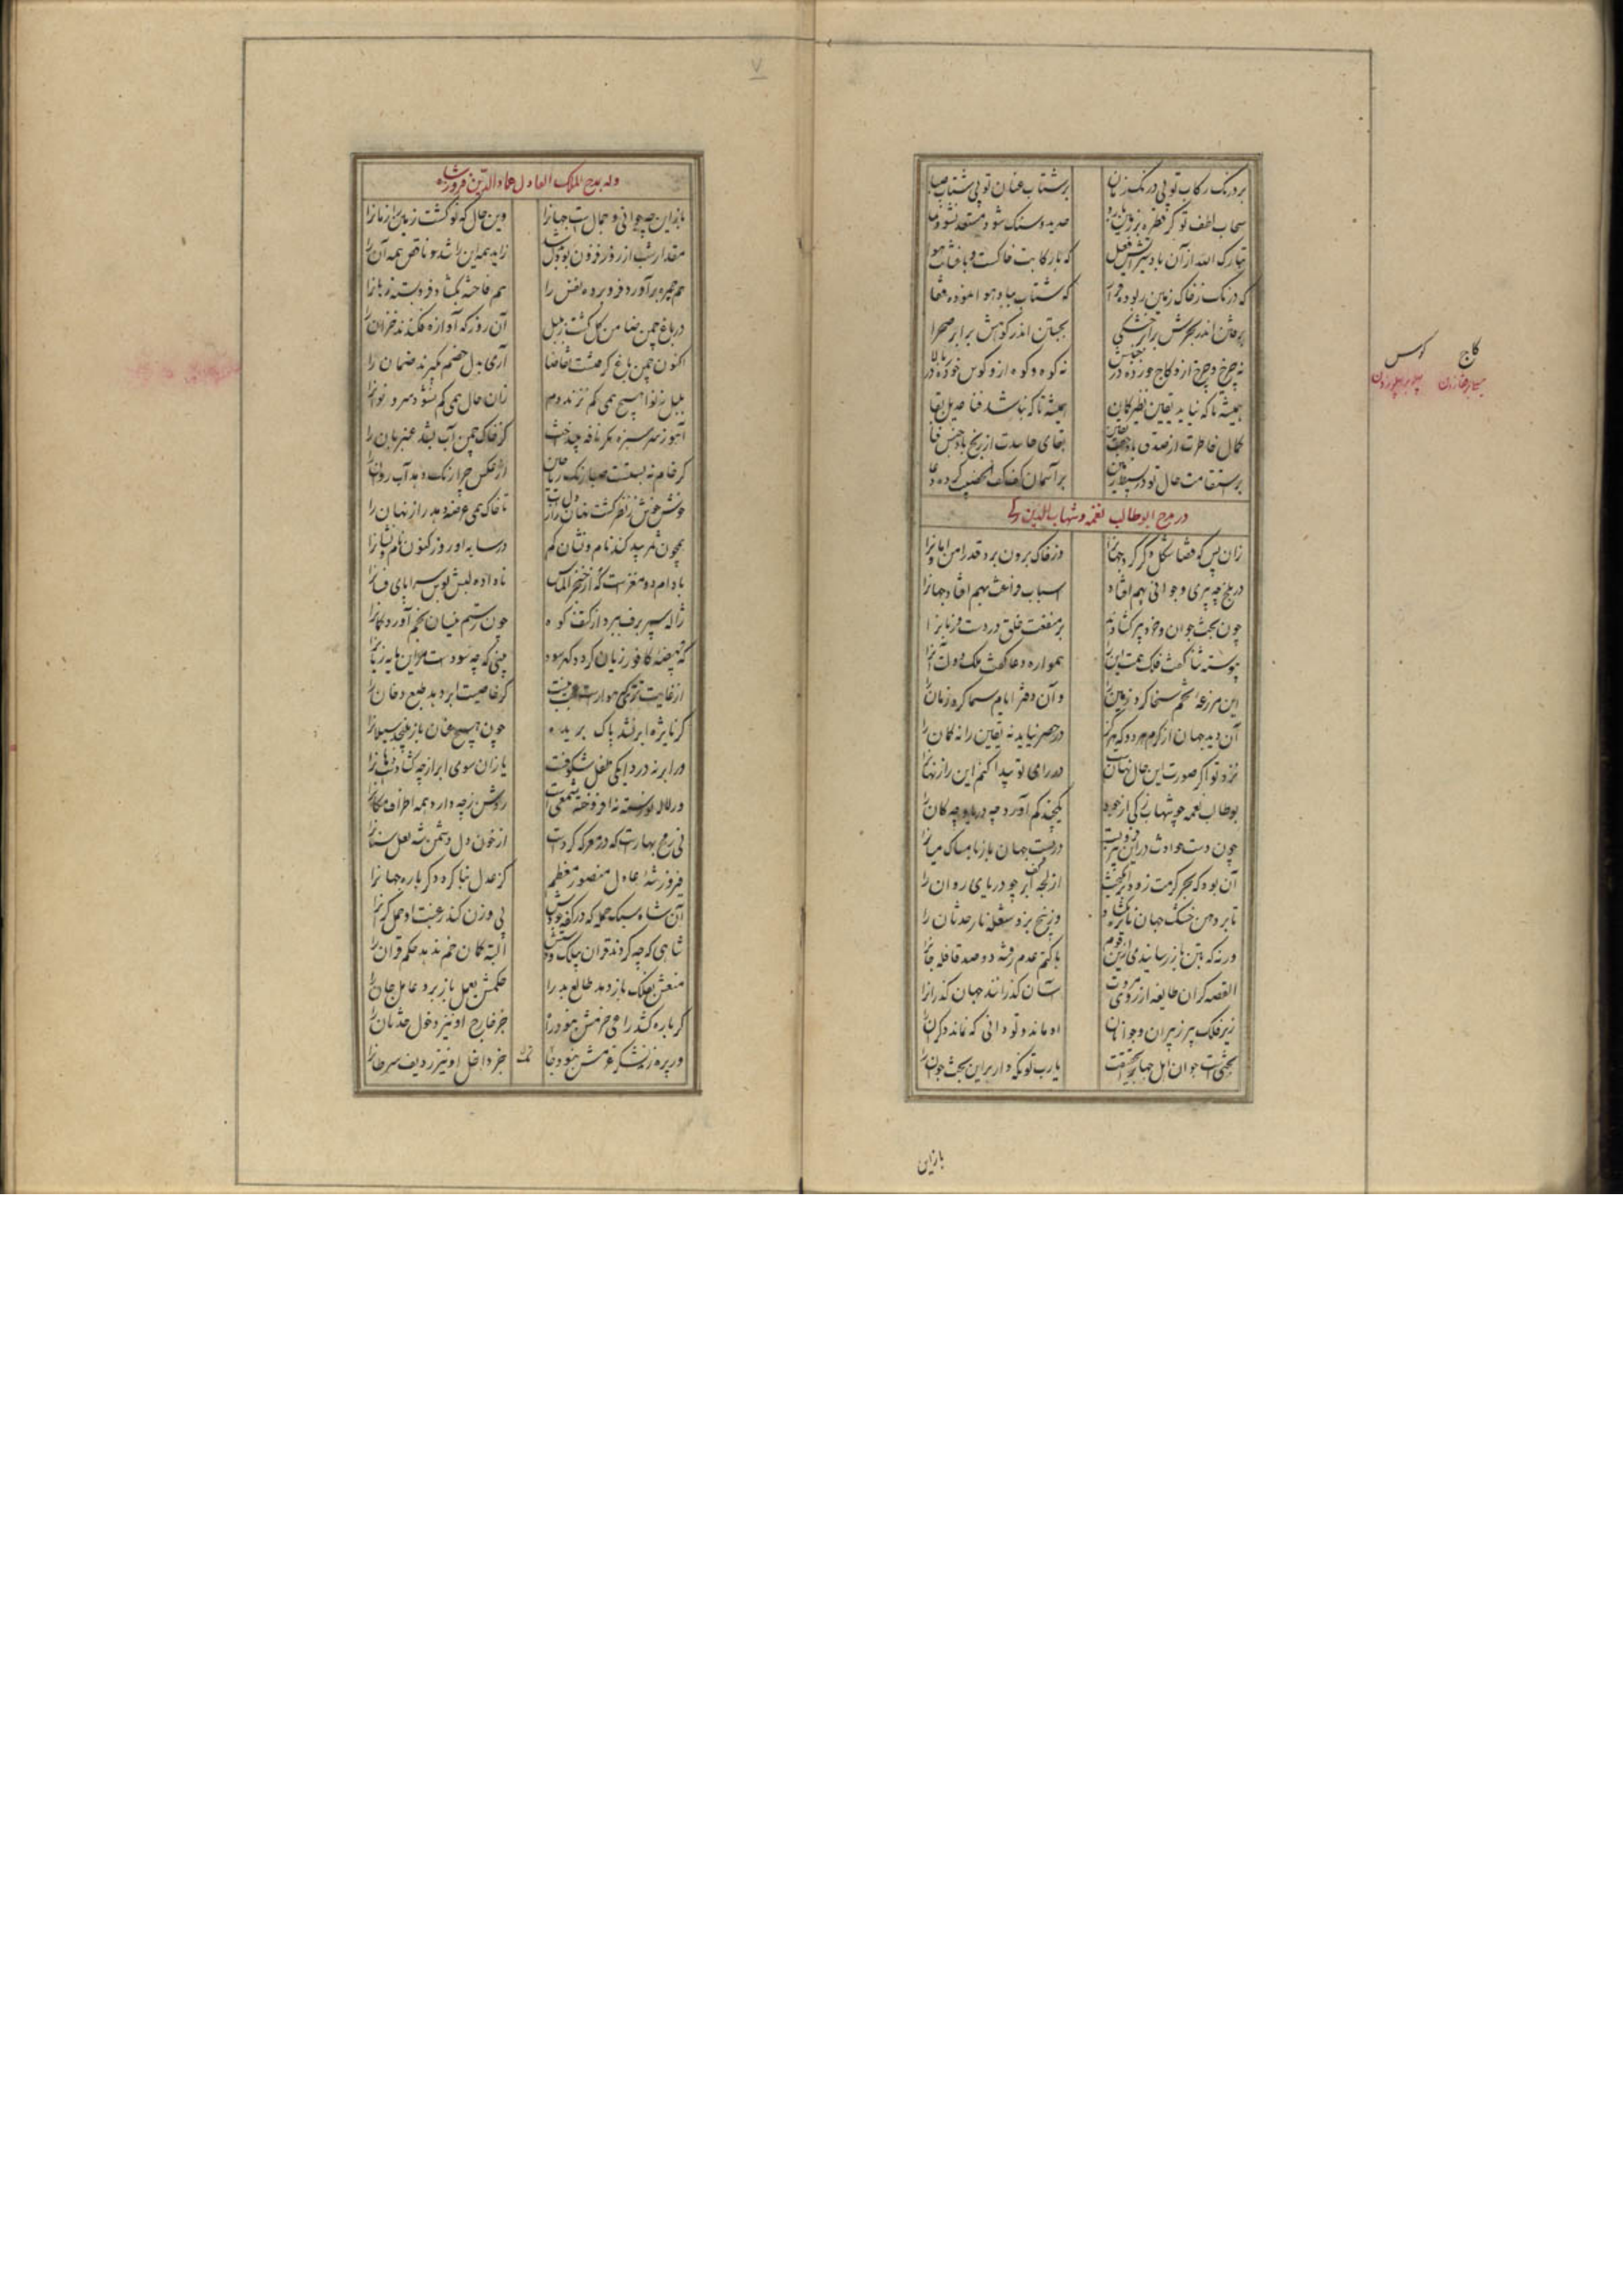 بر درنگ رکاب تو پی درنگ زمان
بر شتاب عنان تو پی شتاب صبا
سحاب لطف تو گر قطره بر زمین بارد
تبارک الله از آن باد سیر آتش فعل
که با رکابت خاکست و با عنانت هوا
که درنگ ز خاک زمین ربوده قرار
که شتاب بباد هوا نموده قفا
بوقتش اندر بحرش برابر خشکی
بجستن اندر کوهش برابر صحرا
نه چرخ و چرخ ازو کاج خورده در جنبش
نه کوه و کوه ازو کوس خورده در بالا
همیشه تا که نیابد یقین نظیر گمان
همیشه تا که نباشد فنا عدیل بقا
کمال خاطرت از صدق باد جفت یقین
بقای حاسدت از رنج باد جنس فنا
بر استقامت حال تو در بسیط زمین
بر آسمان کف کف الخضیب کرده دعا
کاج کوس
در مدح ابوطالب نعمه و شهاب الدین زکی
زان پس که قضا شکل دگر کرد جهانرا
وز خاک برون برد قدر امن و امانرا
در بلخ چه پیری و جوانی بهم افتاد
اسباب فراغت بهم افتاد جهانرا
چون بخت جوان و خرد پیر گشادند
بر منفعت خلق در دست و زبانرا
پیوسته ثنا گفت فلک همت اینرا
همواره دعا گفت ملک دولت آنرا
این مزرعه تخم سخا کرد زمین را
و آن دفتر ایام سما کرد زمان را
آن دید جهان از کرم هر دو که هرگز
در حصر نیاید نه یقین را نه گمان را
نزد تو اگر صورت این حال نهان است
در رای تو پیدا کنم این راز نهانرا
بوطالب نعمه چو شهاب زکی از جود
یکچند کم آورد چه دریا و چه کان را
چون دست حوادث در این هر دو فرو بست
در بست جهان باز بامساک میانرا
آن بود که بحر کرمت زود برانگیخت
از لجه کف ابر چو دریای روان را
تا بر دهن خشک جهان نایژه بگشاد
وز بیخ بزد شعله نار حدثان را
ورنه که بتن باز رسانیدی ازین قوم
با کتم عدم رفته دو صد قافله جانرا
القصه کران طایفه از روی مروت
آسان گذرانند جهان گذرانرا
زیر فلک پیر ز پیران و جوانان
او ماند و تو دانی که نماند دگران را
بختی است جوان اهل جهانرا بحقیقت
یارب تو نگه دار بر این بخت جوان را
بازاین
۷
وله بمدح الملک العادل عماد الدین فیروز شاه
باز این چه جوانی و جمال است جهانرا
وین حال که نو گشت زمین را و زمانرا
مقدار شب از روز فزون بود بدل شد
زاید همه این را شد و ناقص همه آن را
هم جمره برآورد فرو برده نفس را
هم فاخته بگشاد فرو بسته زبانرا
در باغ چمن ضامن گل گشت ز بلبل
آن روز که آوازه فکندند خزان را
اکنون چمن باغ گرفتست تقاضا
آری بدل خصم بگیرند ضمان را
بلبل ز نوا هیچ همی کم نزند دم
زان حال همی کم نشود سرو نوانرا
آهو ز سر سبزه مگر نافه بینداخت
کز خاک چمن آب بشد عنبر بان را
گر خام نه بست است صبا رنگ ریاحین
از عکس چرا رنگ دهد آب روانرا
خوش خوش ز نظر گشت نهان راز دل آب
تا خاک همی عرضه دهد راز نهان را
همچون ثمر بید کند نام و نشان گم
در سایه او روز کنون نام و نشانرا
بادام دو مغز است که از خنجر الماس
ناداده لبش بوس سراپای فسانرا
ژاله سپر برف ببرد از کتف کوه
چون رستم نیسان بخم آورد کمانرا
که بیضه کافور زیان کرد و گهر سود
بینی که چه سود است مر این مایه زیانرا
از غایت تری که هوا راست عجب نیست
گر خاصیت ابر دهد طبع دخان را
گر نایژه ابر نشد پاک بریده
چون هیچ عنان باز نپیچد سیلانرا
ور ابر نه در دایگی طفل شکوفه است
یازان سوی ابر از چه گشادست دهانرا
ور لاله نورسته نه افروخته شمعی است
روشن ز چه دارد همه اطراف مکانرا
نی رمح بهار است که در معرکه کرد است
از خون دل دشمن شه لعل سنانرا
فیروز شه عادل منصور معظم
کز عدل بنا کرد دگر باره جهانرا
آن شاه سبک حمله که در کفه جودش
بی وزن کند رغبت او حمل گرانرا
شاهی که چو کردند قران بیلک و دستش
البته کمان خم ندهد حکم قران را
منعش بفلک باز دهد طالع بد را
حکمش بعمل باز برد عامل جان را
گر باره کشد راعی حزمش نبود راه
جز خارج او نیز دخول حدثان را
ور پره زند لشکر عزمش نبود جا
جز داخل او نیز ردیف سرطانرا